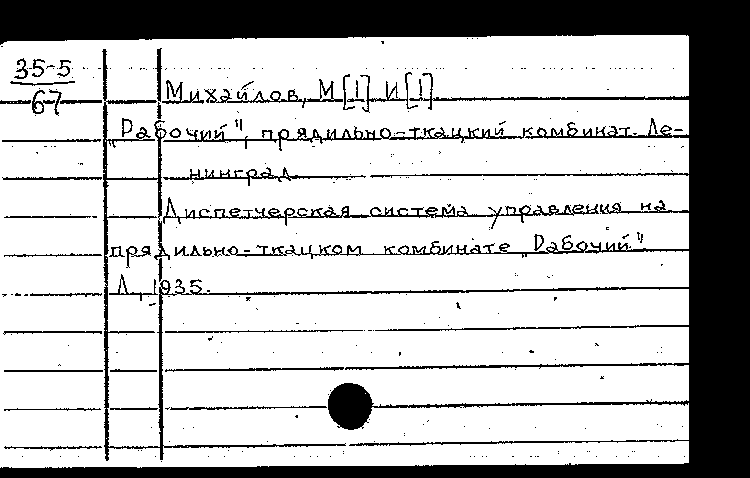 35-5
67
Михайлов, М[!] И[!]
„Рабочий", прядильно-ткацкий комбинат. Ле-
нинград.
Диспетчерская система управления на
прядильно-ткацком комбинате „Рабочий".
Л., 1935.